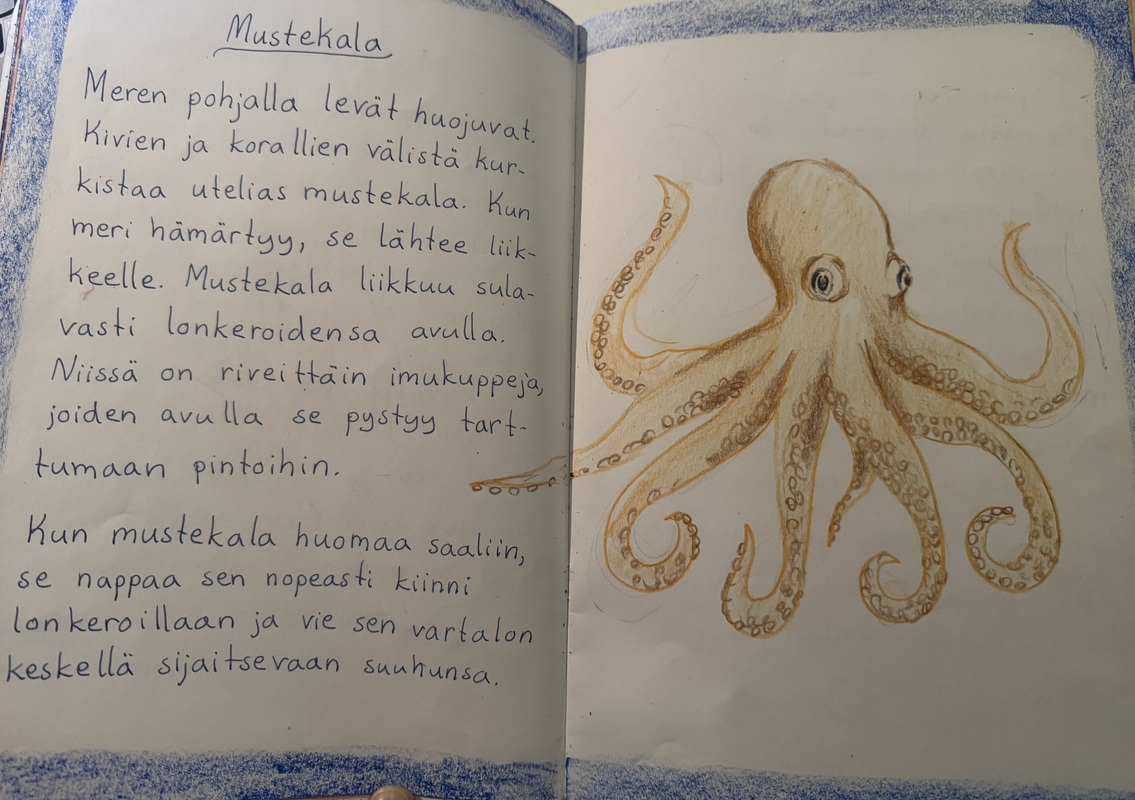 Mustekala
Meren pohjalla levät huojuvat.
Kivien ja korallien välistä kur-
kistaa utelias mustekala. Kun
meri hämärtyy, se lähtee liik-
keelle. Mustekala liikkuu sula-
vasti lonkeroidensa avulla.
Niissä on riveittäin imukuppeja,
joiden avulla se pystyy tart-
tumaan pintoihin.
Kun mustekala huomaa saaliin,
se nappaa sen nopeasti kiinni
lonkeroillaan ja vie sen vartalon
keskellä sijaitsevaan suuhunsa.